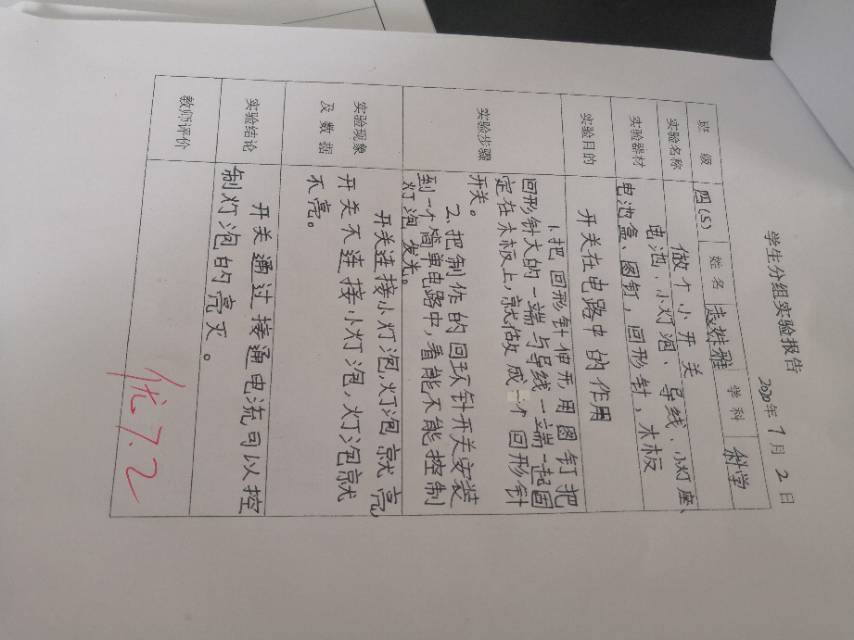 学生分组实验报告
2020年7月2日
班级 四(5) 姓名 赵姝雅 学科 科学
实验名称 做个小开关
实验器材 电池、小灯泡、导线、小灯座、
电池盒、图钉,回形针,木板
实验目的 开关在电路中的作用
实验步骤 1.把回形针伸开用图钉把
回形针大的一端与导线一端一起固
定在木板上,就做成一个回形针
开关。
2.把制作的回环针开关安装
到一个简单电路中,看能不能控制
灯泡发光。
实验现象及数据 开关连接小灯泡,灯泡就亮
开关不连接小灯泡,灯泡就
不亮。
实验结论 开关通过接通电流可以控
制灯泡的亮灭。
教师评价 优 7.2